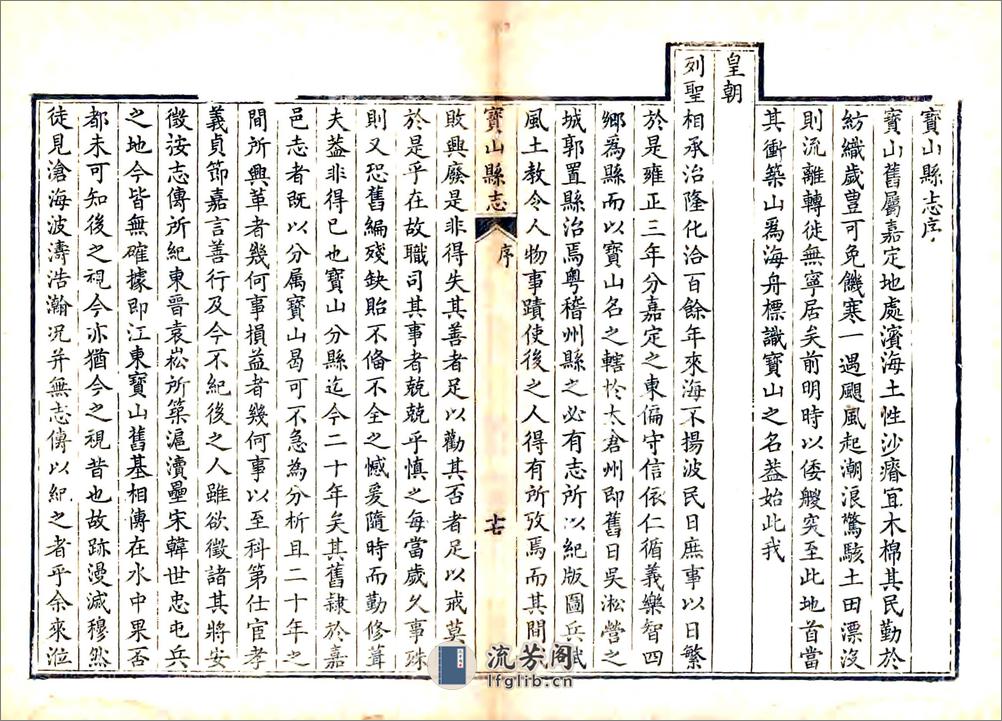 寶山縣志序
寶山舊屬嘉定地處濱海土性沙瘠宜木棉其民勤於
紡織歲豊可免饑寒一遇颶風起潮浪驚駭土田漂沒
則流離轉徙無寧居矣前明時以倭艘突至此地首當
其衝築山爲海舟標識寶山之名葢始此我
皇朝
列聖相承治隆化洽百餘年來海不揚波民日庶事以日繁
於是雍正三年分嘉定之東偏守信依仁循義樂智四
鄉爲縣而以寶山名之轄於太倉州即舊日吳淞營之
城郭置縣治焉粵稽州縣之必有志所以紀版圖兵賦
風土敎令人物事蹟使後之人得有所攷焉而其間
寶山縣志
序
十七
敗興廢是非得失其善者足以勸其否者足以戒莫
於是乎在故職司其事者兢兢乎慎之每當歲久事殊
則又恐舊編殘缺貽不俻不全之憾爰隨時而勤修葺
夫葢非得已也寶山分縣迄今二十年矣其舊隷於嘉
邑志者旣以分属寶山曷可不急為分析且二十年之
間所興革者幾何事損益者幾何事以至科第仕宦孝
義貞節嘉言善行及今不紀後之人雖欲徵諸其將安
徵按志傳所紀東晉袁崧所築滬瀆壘宋韓世忠屯兵
之地今皆無確據即江東寶山舊基相傳在水中果否
都未可知後之視今亦猶今之視昔也故跡漫滅穆然
徒見滄海波濤浩瀚况并無志傳以紀之者乎余來涖
流芳阁
lfglib.cn